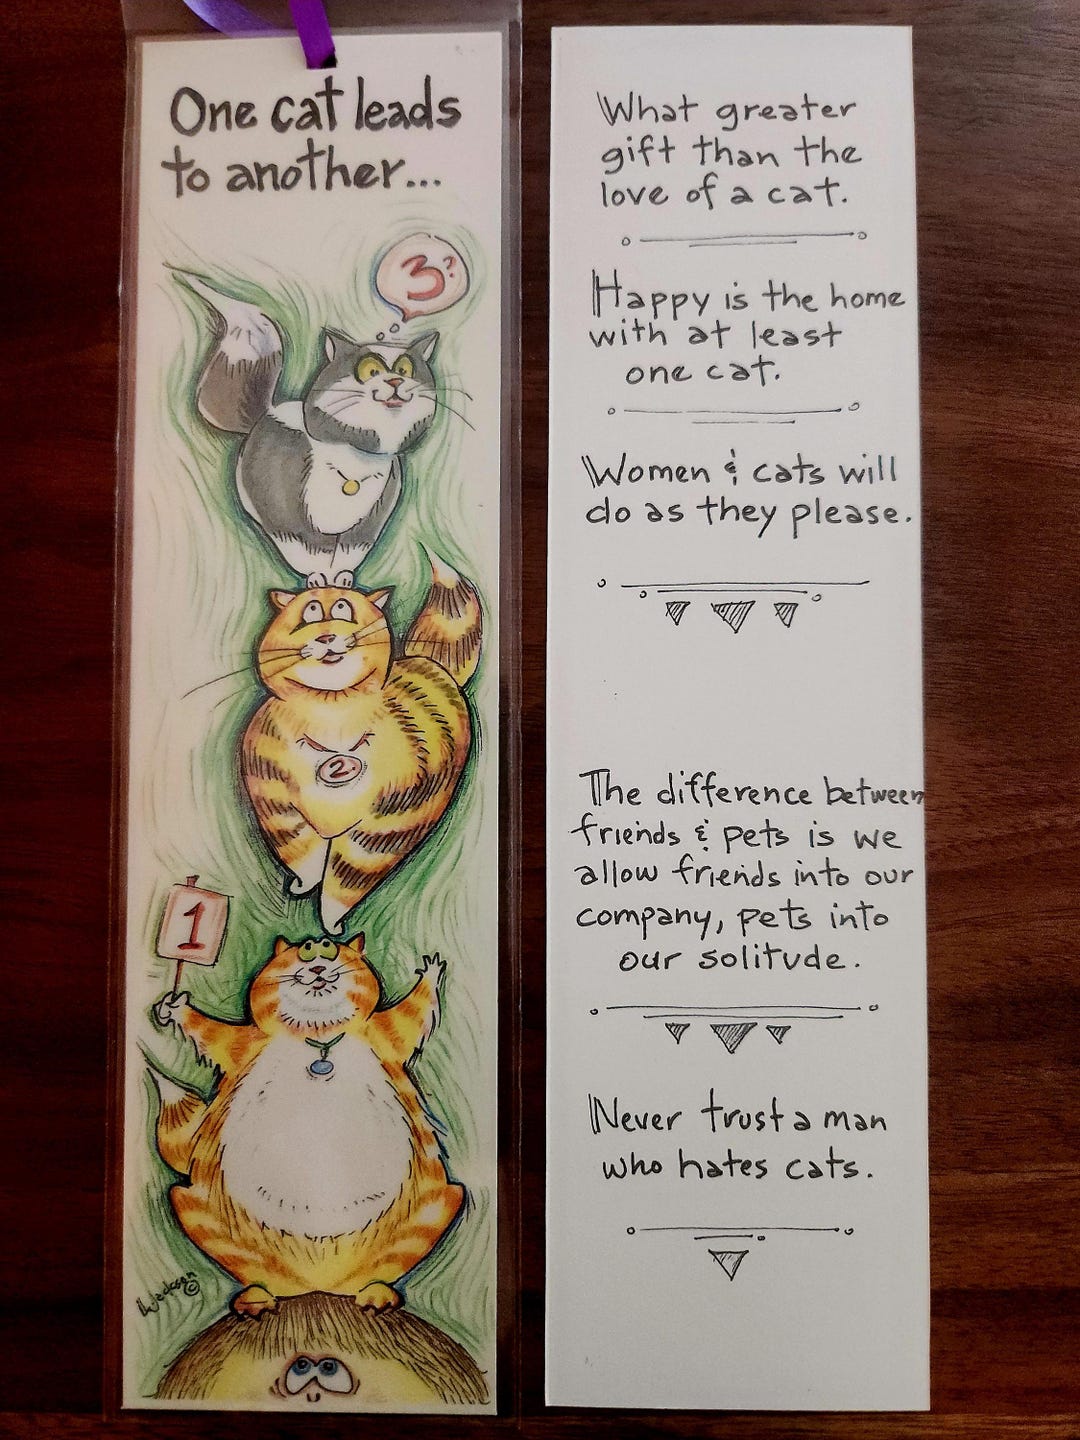 One cat leads
to another...
3?
2.
1
LWJackson ©
What greater
gift than the
love of a cat.
Happy is the home
with at least
one cat.
Women & cats will
do as they please.
The difference between
friends & pets is we
allow friends into our
company, pets into
our solitude.
Never trust a man
who hates cats.